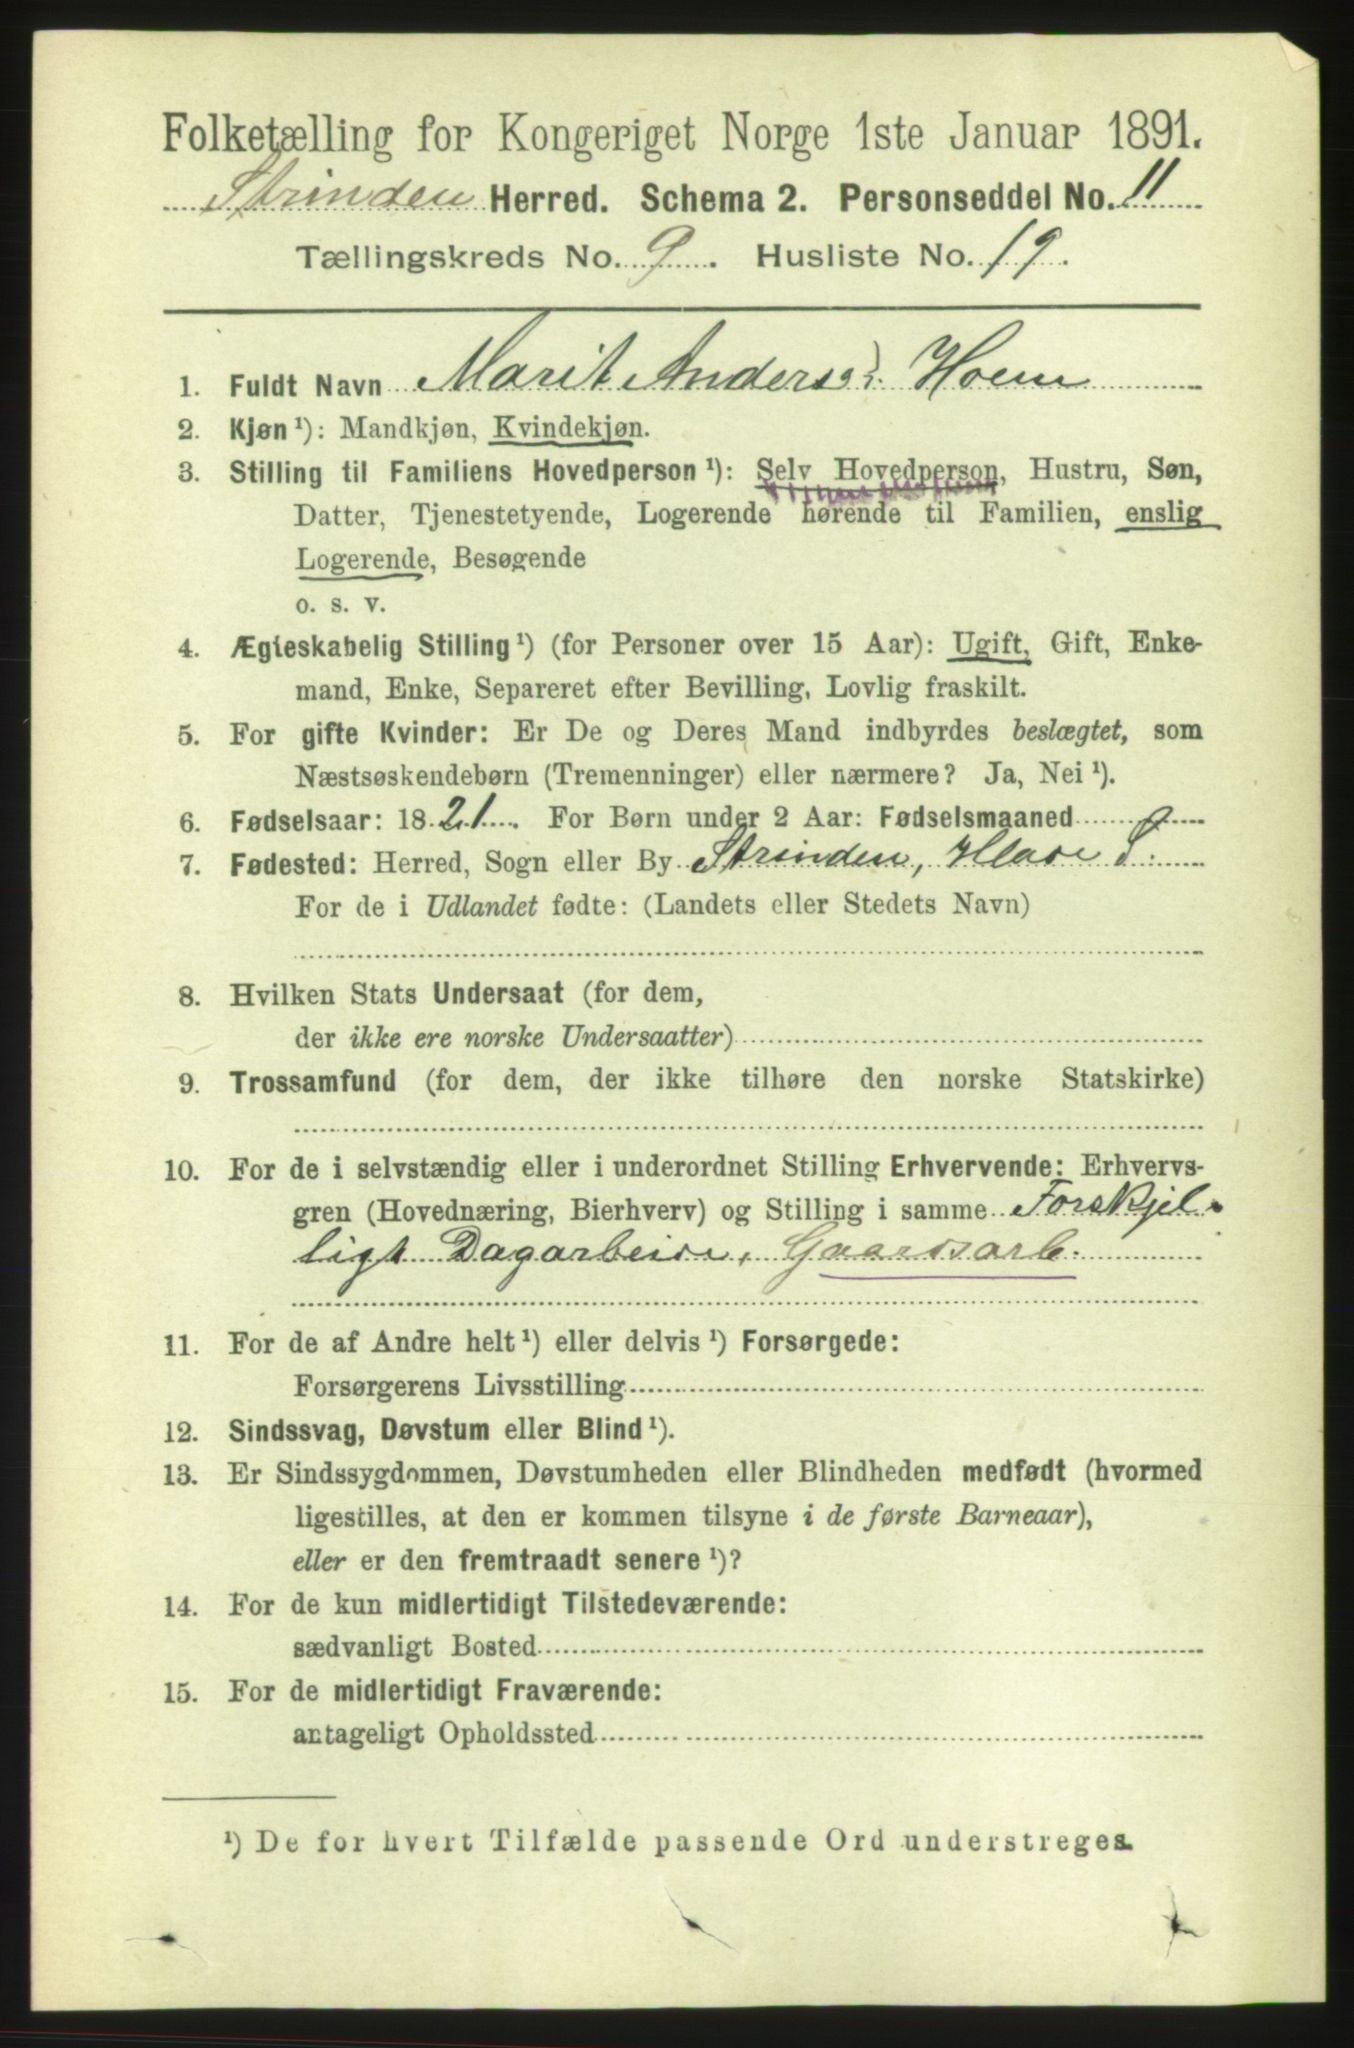 Folketælling for Kongeriget Norge 1ste Januar 1891.
Strinden Herred. Schema 2. Personseddel No. 11
Tællingskreds No. 9. Husliste No. 19.
1. Fuldt Navn Marit Andersd. Hoem
2. Kjøn ¹): Mandkjøn, Kvindekjøn.
3. Stilling til Familiens Hovedperson ¹): Selv Hovedperson, Hustru, Søn,
Datter, Tjenestetyende, Logerende hørende til Familien, enslig
Logerende, Besøgende
o. s. v.
4. Ægteskabelig Stilling ¹) (for Personer over 15 Aar): Ugift, Gift, Enke-
mand, Enke, Separeret efter Bevilling, Lovlig fraskilt.
5. For gifte Kvinder: Er De og Deres Mand indbyrdes beslægtet, som
Næstsøskendebørn (Tremenninger) eller nærmere? Ja, Nei ¹).
6. Fødselsaar: 1821. For Børn under 2 Aar: Fødselsmaaned
7. Fødested: Herred, Sogn eller By Strinden, Hlade S.
For de i Udlandet fødte: (Landets eller Stedets Navn)
8. Hvilken Stats Undersaat (for dem,
der ikke ere norske Undersaatter)
9. Trossamfund (for dem, der ikke tilhøre den norske Statskirke)
10. For de i selvstændig eller i underordnet Stilling Erhvervende: Erhvervs-
gren (Hovednæring, Bierhverv) og Stilling i samme Forskjel-
ligt Dagarbeide, Gaardsarb.
11. For de af Andre helt ¹) eller delvis ¹) Forsørgede:
Forsørgerens Livsstilling
12. Sindssvag, Døvstum eller Blind ¹).
13. Er Sindssygdommen, Døvstumheden eller Blindheden medfødt (hvormed
ligestilles, at den er kommen tilsyne i de første Barneaar),
eller er den fremtraadt senere ¹)?
14. For de kun midlertidigt Tilstedeværende:
sædvanligt Bosted
15. For de midlertidigt Fraværende:
antageligt Opholdssted
¹) De for hvert Tilfælde passende Ord understreges.